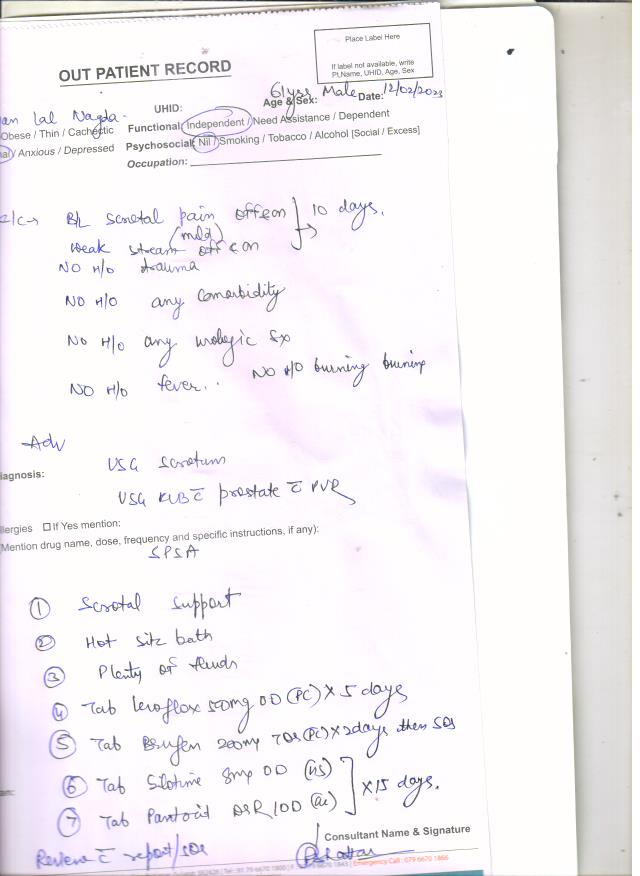 Place Label Here
If label not available, write
Pt.Name, UHID, Age, Sex
OUT PATIENT RECORD
an Lal Nagda.
UHID:
Age & Sex: 61yrs Male Date: 12/02/2023
Obese / Thin / Cachectic Functional: Independent / Need Assistance / Dependent
al / Anxious / Depressed Psychosocial: Nil / Smoking / Tobacco / Alcohol [Social / Excess]
Occupation:
B/L scrotal pain off & on } 10 days.
(mild)
weak stream off & on
NO H/O trauma
NO H/O any comorbidity
NO H/O any urologic Sx
NO H/O burning
NO H/O fever..
Adv
USG Scrotum
iagnosis:
USG KUB c̄ prostate c̄ PVR
llergies ☐ If Yes mention:
(Mention drug name, dose, frequency and specific instructions, if any):
SPSA
① Scrotal support
② Hot Sitz bath
③ Plenty of fluids
④ Tab Levoflox 500mg OD (PC) x 5 days
⑤ Tab Brufen 200mg TDS (PC) x 2days then SOS
⑥ Tab 8mg OD (HS)
} x 15 days.
⑦ Tab DSR 1OD (ac)
Consultant Name & Signature
Review c̄ report/SOS
Emergency Call : 079 6670 1866